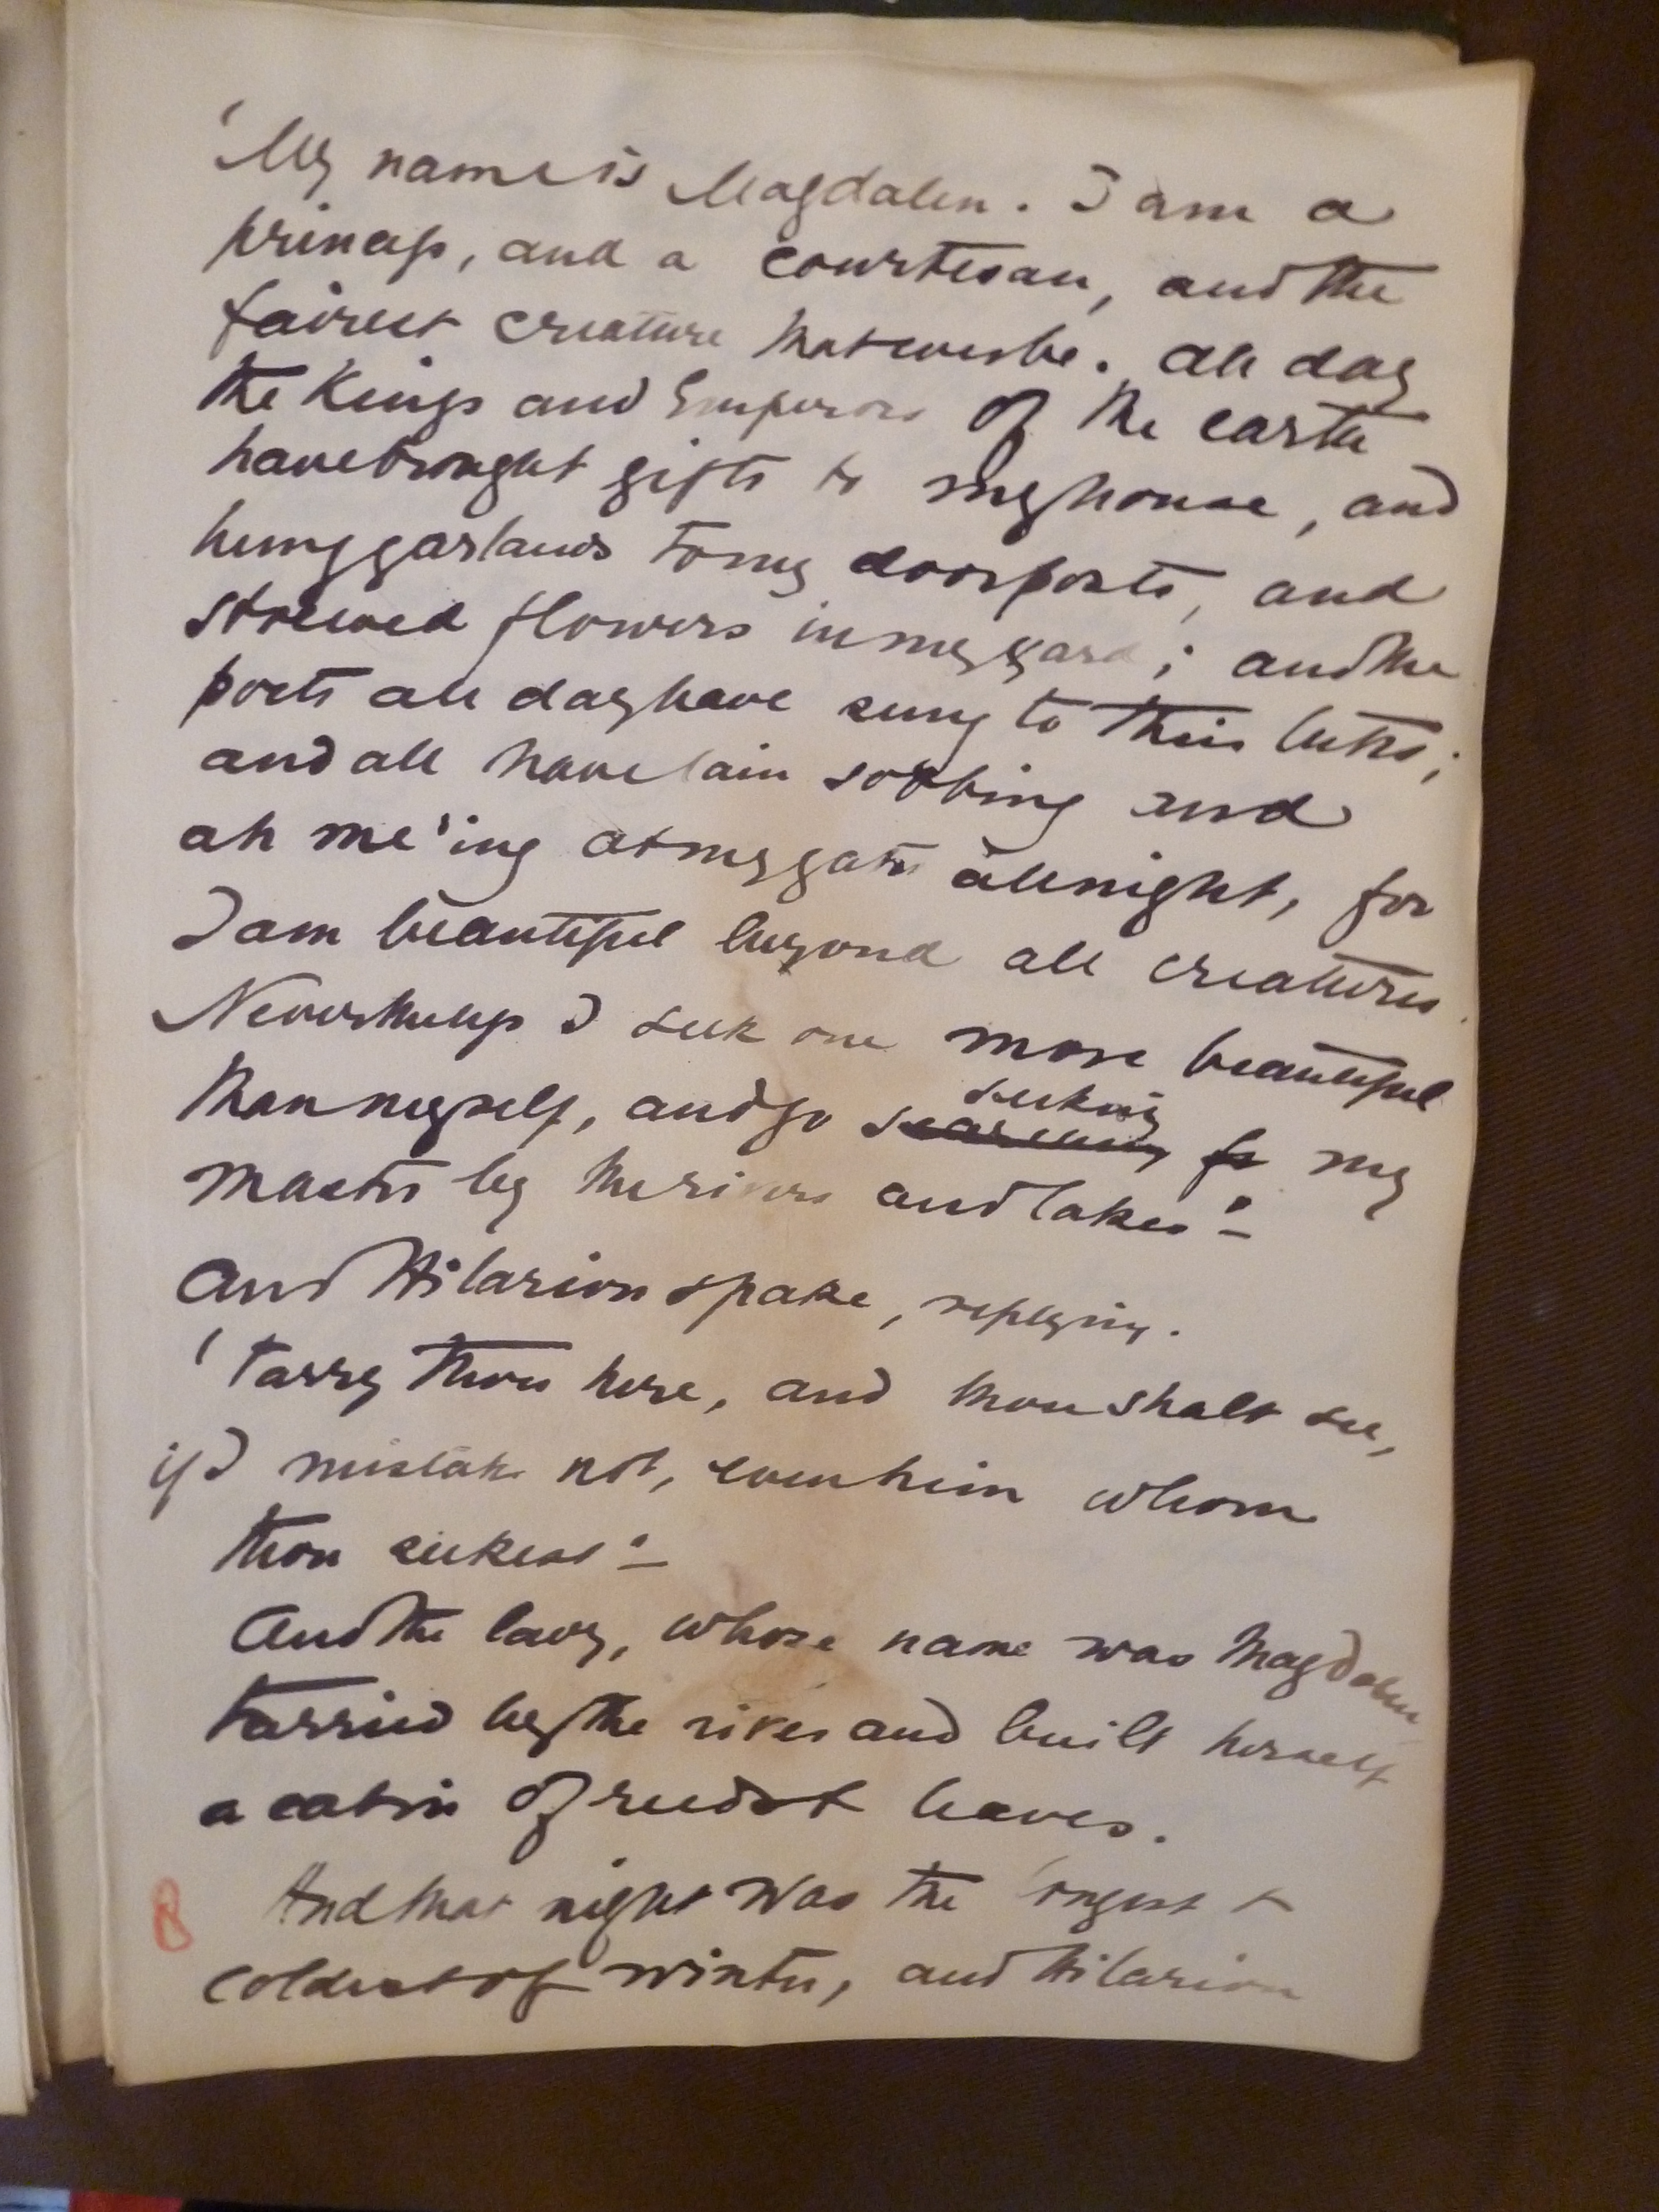 'My name is Magdalen. I am a
princess, and a courtesan, and the
fairest creature that ever be. All day
the Kings and Emperors of the earth
have brought gifts to my house, and
hung garlands to my doorposts, and
strewed flowers in my yard; and the
poets all day have sung to their lutes;
and all have lain sobbing and
ah me'ing at my gate all night, for
I am beautiful beyond all creatures.
Nevertheless I seek one more beautiful
than myself, and go searching for my
seeking
master by the rivers and lakes'—
And Hilarion spake, replying.
'Tarry thou here, and thou shalt see,
if I mistake not, even him whom
thou seekest'—
And the lady, whose name was Magdalen
tarried by the river and built herself
a cabin of reeds & leaves.
And that night was the longest &
coldest of winter, and Hilarion
8